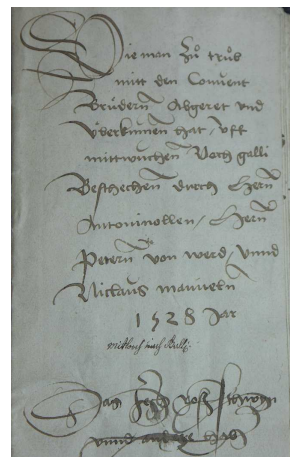 Wie man zů trůb
mitt den Conuent
Brüdern Abgeret vnd
Vberkumen hat / vff
mittwuchen Nach galli
Beschechen durch Hern
Antoninollen / Hern
Petern von werd / vnnd
Niclaus manueln
1528 Jar
mittwoch nach Galli.
Das
vnnd